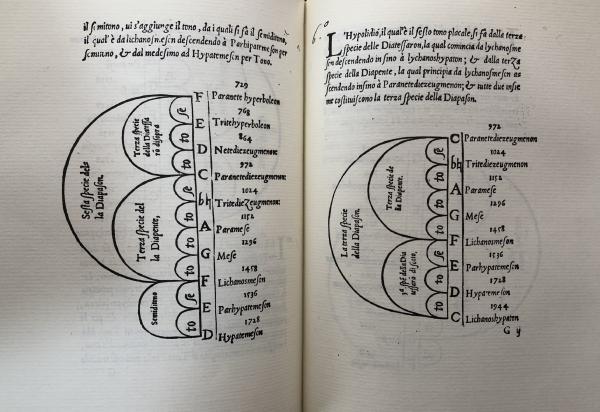 il semitono, vi s'aggiunge il tono, da i quali si fà il semiditono,
il qual'è da lichanosm.esen descendendo à Parhipatemesen per
semituno, & dal medesimo ad Hypatemesen per Tono.
729
F Paranete hyperboleon
768
E Tritehyperboleon
864
D Netediezeugmenon
972
C Paranetediezeugmenon:
1024
bh Tritediezeugmenon
1152
A Paramese
1296
G Mese
1458
F Lichanosmesen
1536
E Parhypatemesen
1728
D Hypatemesen
se
to
to
se
to
to
to
se
to
Terza specie
della Diatessa
rō disopra
Sesta specie della
la Diapason.
Terza specie del
la Diapente,
Semiditono
6.°
L'Hypolidio, il qual'è il sesto tono placale, si fa dalla terza
specie delle Diatessaron, la qual comincia da lychanosme
sen descendendo in sino à lychanoshypaton; & dalla terza
specie della Diapente, la qual principia da lychanosmesen as
cendendo insino à Paranetediezeugmenon; & tutte due insie
me costituiscono la terza specie della Diapason.
972
C Paranetediezeugmenon
1024
bh Tritediezeugmenon
1152
A Paramese
1296
G Mese
1458
F Lichanosmesen
1536
E Parhypatemesen
1728
D Hypatemesen
1944
C Lichanoshypaton
se
to
to
to
se
to
to
La terza specie
della Diapason.
Terza specie de
la Diapente.
3ª spē della Dia
G ij